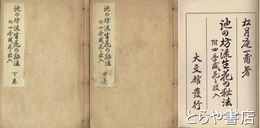 松月庵一甫著
池の坊流生花の秘法
附四季盛花と投入
大文館發行
池の坊流生花の秘法
附四季盛花と投入
中巻
池の坊流生花の秘法
附四季盛花と投入
下巻
とらや書店